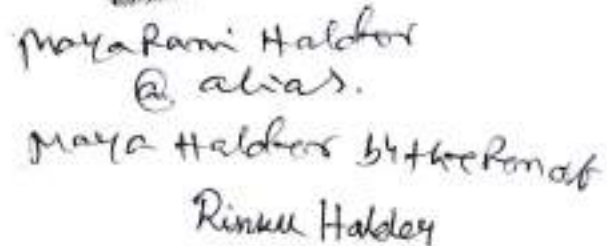 Maya Rani Haldar
@ alias.
Maya Haldar by the Pen of
Rinku Halder